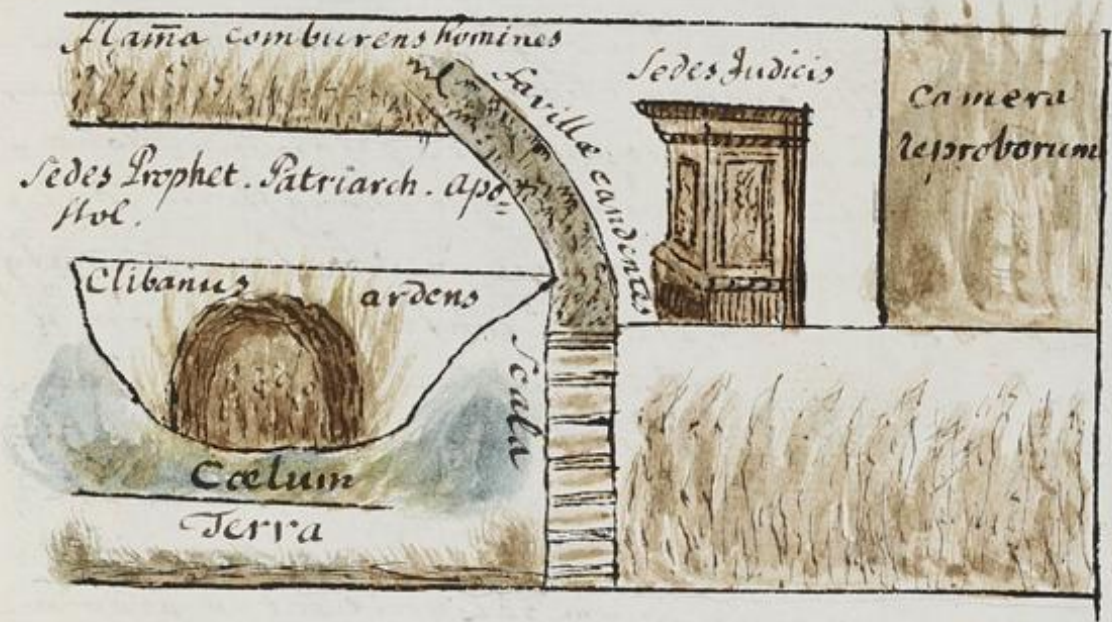 Flam̄a comburens homines
favillæ candentes
Sedes Judicis
Camera
reproborum
Sedes Prophet. Patriarch. Apo-
stol.
Clibanus ardens
Scala
Cœlum
Terra